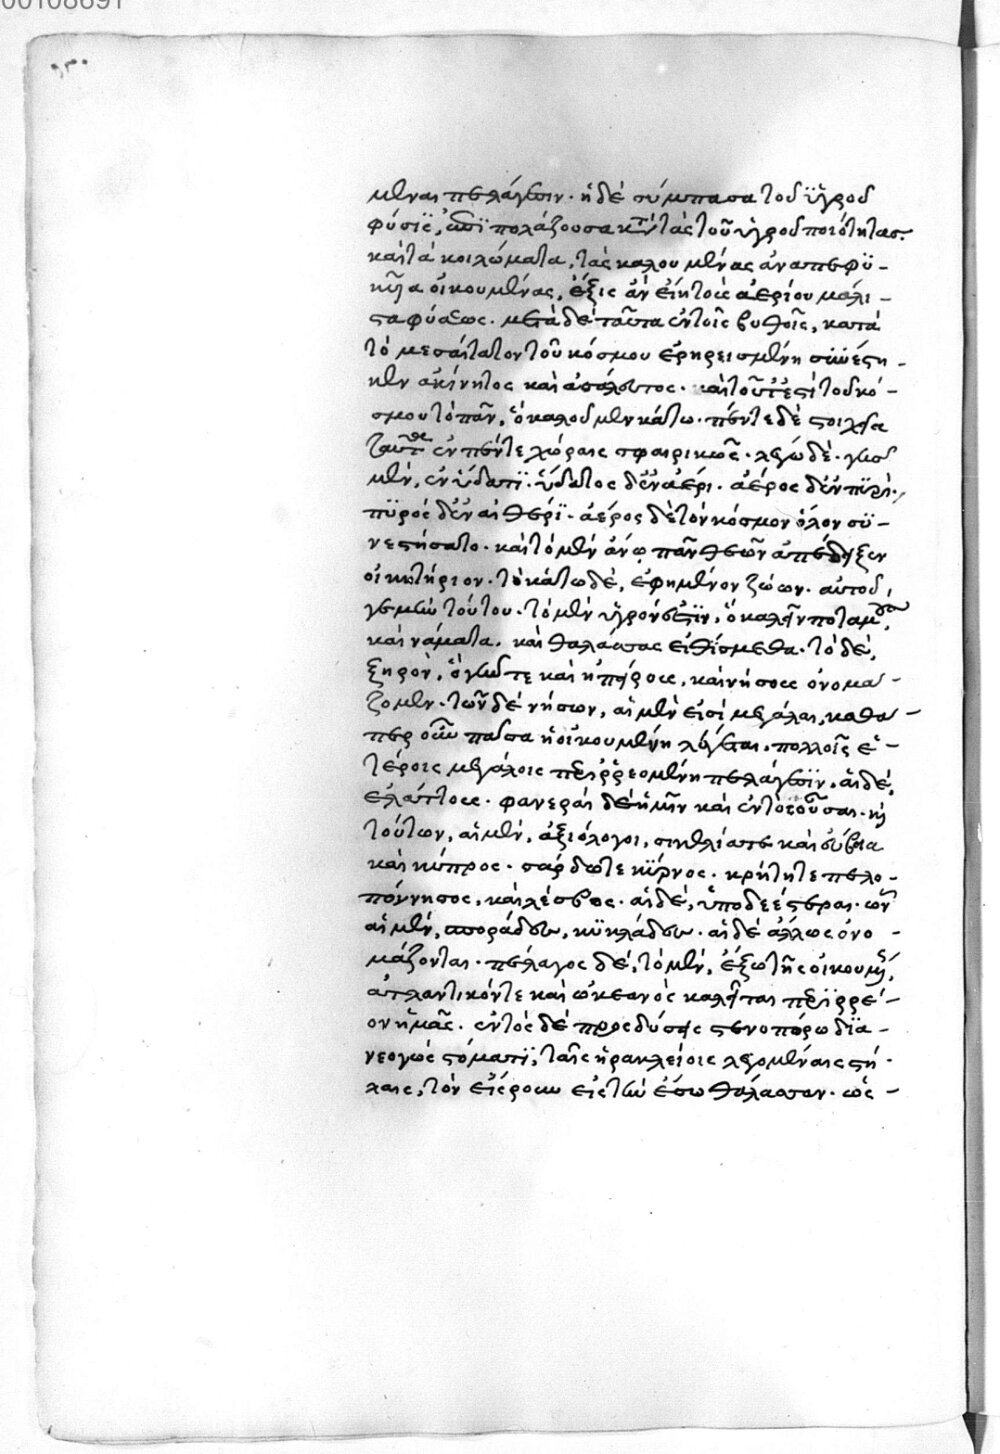 μεναι πελάγεσιν. ἡ δὲ σύμπασα τοῦ ὑγροῦ
φύσις, ἐπιπολάζουσα κατὰ τὰς τοῦ ὑγροῦ ποιότητας.
καὶ τὰ κοιλώματα, τὰς καλουμένας ἀναπεφυ-
κῖα οἰκουμένας, ἑξῆς ἂν εἴη τῆς ἀερίου μάλι-
στα φύσεως. μετὰ δὲ ταῦτα ἐν τοῖς βυθοῖς, κατὰ
τὸ μεσαίτατον τοῦ κόσμου ἐρηρεισμένη συνέστη-
κεν ἀκίνητος καὶ ἀσάλευτος. καὶ τοῦτ' ἐστὶ τοῦ κό-
σμου τὸ πᾶν, ὃ καλοῦμεν κάτω. πέντε δὲ στοιχεῖα
ταῦτα ἐν πέντε χώραις σφαιρικῶς. λέγω δὲ. γῆς
μὲν, ἐν ὕδατι. ὕδατος δ' ἐν ἀέρι. ἀέρος δ' ἐν πυρὶ.
πυρός δ' ἐν αἰθέρι. ἀέρος δὲ τὸν κόσμον ὅλον συ-
νεστήσατο. καὶ τὸ μὲν ἄνω πᾶν θεῶν ἀπέδειξεν
οἰκητήριον. τὸ κάτω δὲ, ἐφημένον ζώων. αὐτοῦ,
γε μὴν τούτου. τὸ μὲν ὑγρόν ἐστιν, ὃ καλεῖν ποταμοὺς,
καὶ νάματα, καὶ θαλάσσας εἰθίσμεθα. τὸ δὲ,
ξηρὸν, ὃ γῆν τε καὶ ἠπείρους, καὶ νήσους ὀνομά-
ζομεν. τῶν δὲ νήσων, αἱ μὲν εἰσὶ μεγάλαι, καθά-
περ οὖν πᾶσα ἡ οἰκουμένη λέγεται, πολλοῖς ἑ-
τέροις μεγάλοις περιρρεομένη πελάγεσιν, αἱ δὲ,
ἐλάττους. φανεραὶ δὲ ἡμῖν καὶ ἐντὸς οὖσαι. καὶ
τούτων, αἱ μὲν, ἀξιόλογοι, σικελία τε καὶ εὔβοια
καὶ κύπρος. σαρδώ τε κύρνος. κρήτη τε πελο-
πόννησος, καὶ λέσβος. αἱ δὲ, ὑποδεέστεραι. ὧν
αἱ μὲν, σποράδες, κυκλάδες. αἱ δὲ ἄλλως ὀνο-
μάζονται. πέλαγος δὲ, τὸ μὲν, ἔξω τῆς οἰκουμένης,
ἀτλαντικόν τε καὶ ὠκεανὸς καλεῖται περιρρέ-
ον ἡμᾶς. ἐντὸς δὲ πρὸς δύσεις στενοπόρῳ δια-
νεογὼς στόματι, ταῖς ἡρακλείοις λεγομέναις στή-
λαις, τὸν εἴσρουν εἰς τὴν ἔσω θάλασσαν. ὡς-